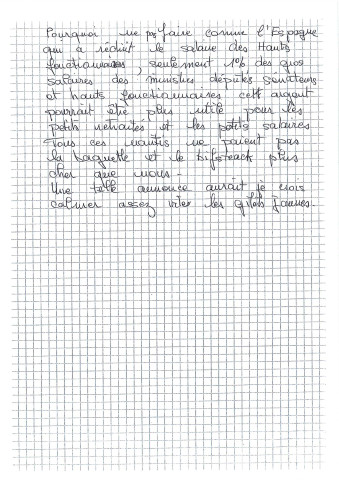 Pourquoi ne pas faire comme l'Espagne
qui a réduit le salaire des Hauts
fonctionnaires, seulement 10% des gros
salaires des ministres députés sénateurs
et hauts fonctionnaires cett argent
pourrait être plus utile pour les
petits retraités et les petits salaires
Tous ces nantis ne paient pas
la baguette et le bifsteack plus
cher que nous -
Une telle annonce aurait je crois
calmer assez vite les gilets jaunes.